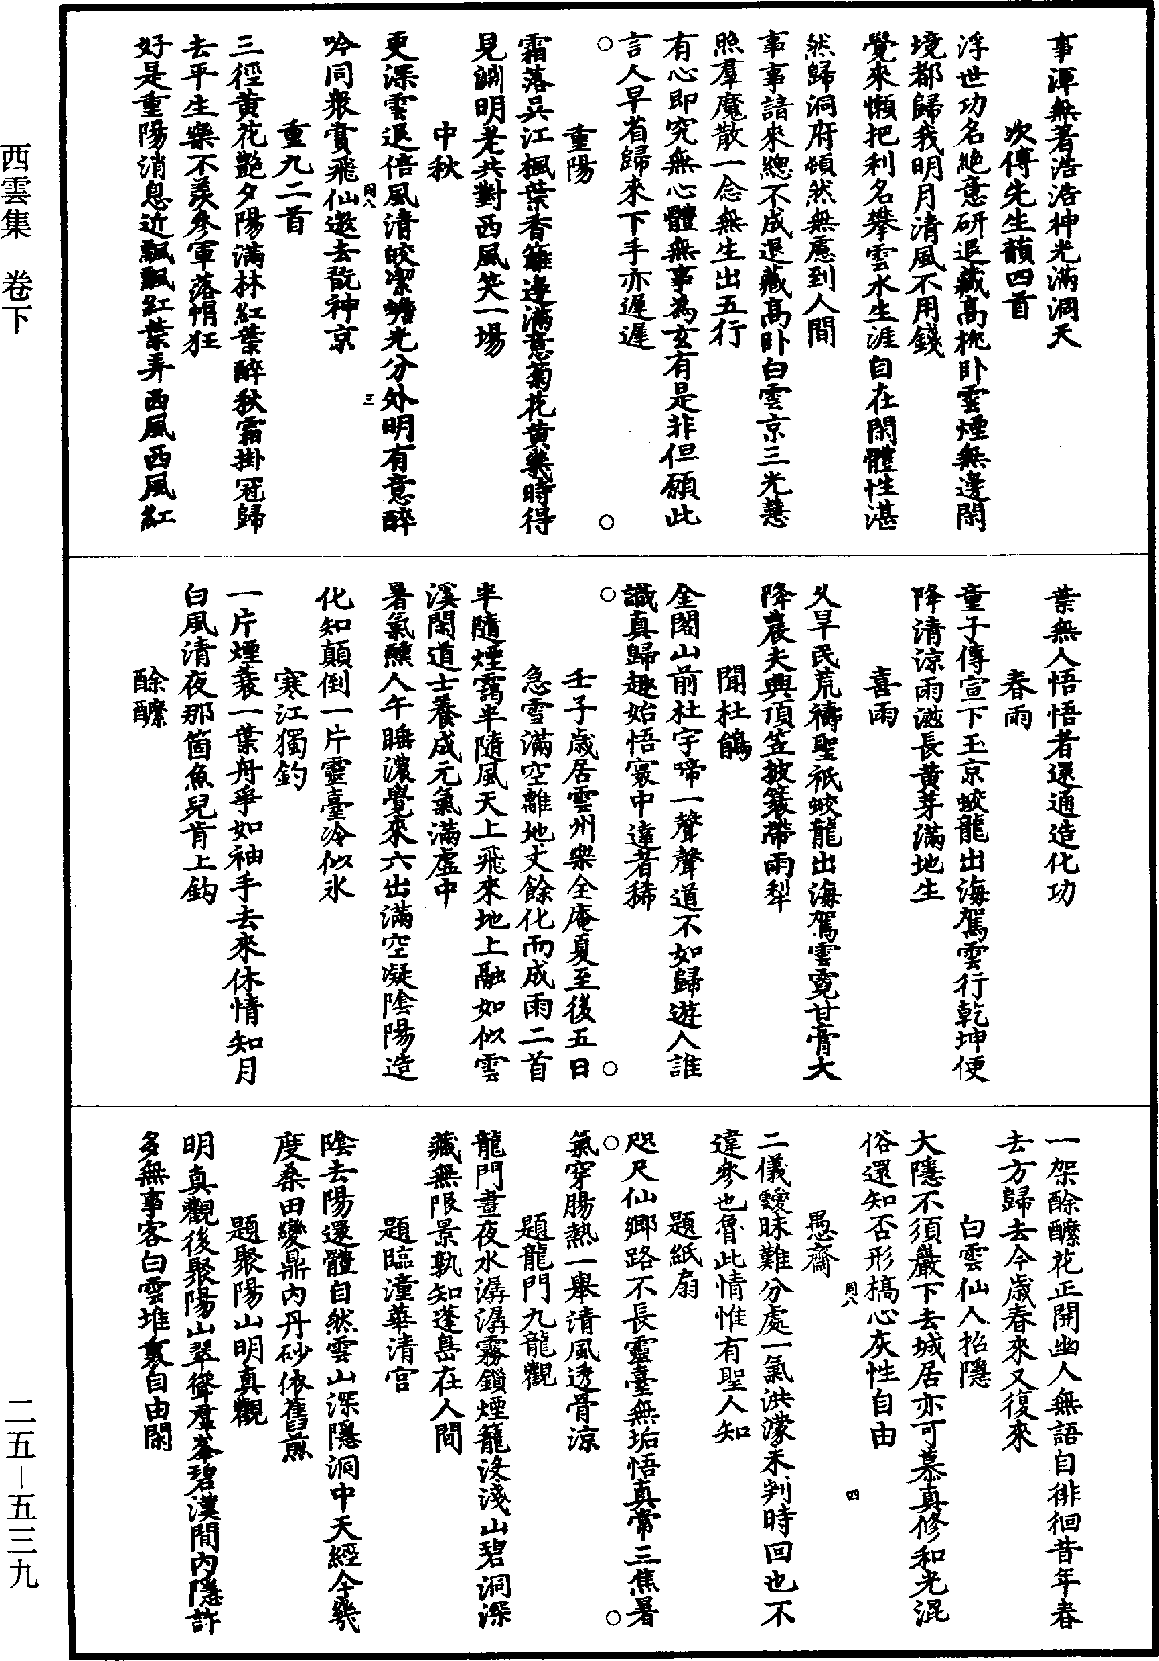 西雲集　卷下
事渾無著浩浩神光滿洞天
次傅先生韻四首
浮世功名絕意研退藏高枕卧雲煙無邊閑
境都歸我明月清風不用錢
覺來懶把利名攀雲水生涯自在閑體性湛
然歸洞府頓然無慮到人間
事事諳來總不成退藏高卧白雲京三光慧
照羣魔散一念無生出五行
有心即究無心體無事為玄有是非但願此
言人早省歸來下手亦遲遲
重陽
霜落吳江楓葉香籬邊滿意菊花黄幾時得
見閑明老共對西風笑一場
中秋
更深雲退倍風清皎潔蟾光分外明有意醉
吟同衆賞飛仙邀去翫神京
同八
三
重九二首
三徑黄花艷夕陽滿林紅葉醉秋霜掛冠歸
去平生樂不羨參軍落帽狂
好是重陽消息近飄飄紅葉弄西風西風紅
葉無人悟悟者還通造化功
春雨
童子傳宣下玉京蛟龍出海駕雲行乾坤便
降清涼雨滋長黄芽滿地生
喜雨
久旱民荒禱聖祇蛟龍出海駕雲霓甘膏大
降農夫興頂笠披簑帶雨犁
聞杜鵑
金閣山前杜宇啼一聲聲道不如歸遊人誰
識真歸趣始悟寰中達者稀
壬子歲居雲州樂全庵夏至後五日
急雪滿空離地丈餘化而成雨二首
半隨煙靄半隨風天上飛來地上融如似雲
溪閑道士養成元氣滿虛中
暑氣燻人午睡濃覺來六出滿空凝陰陽造
化知顛倒一片靈臺冷似氷
寒江獨釣
一片煙蓑一葉舟爭如袖手去來休情知月
白風清夜那箇魚兒肯上鈎
酴醿
一架酴醿花正開幽人無語自徘徊昔年春
去方歸去今歲春來又復來
白雲仙人招隱
大隱不須巖下去城居亦可慕真修和光混
俗還知否形槁心灰性自由
愚齋
同八
四
二儀曖昧難分處一氣洪濛未判時回也不
違參也魯此情惟有聖人知
題紙扇
咫尺仙鄉路不長靈臺無垢悟真常三焦暑
氣穿腸熱一舉清風透骨涼
題龍門九龍觀
龍門晝夜水潺潺霧鎖煙籠淡淺山碧洞深
藏無限景孰知蓬島在人間
題臨潼華清宮
陰去陽還體自然雲山深隱洞中天經今幾
度桑田變鼎內丹砂依舊煎
題聚陽山明真觀
明真觀後聚陽山翠聳羣峯碧漢間內隱許
多無事客白雲堆裏自由閑
二五—五三九